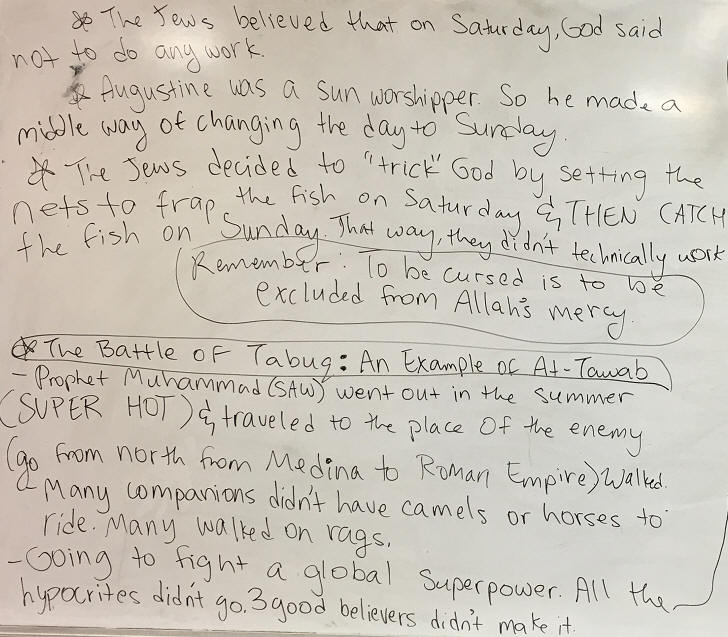 * The Jews believed that on Saturday, God said
not to do any work.
* Augustine was a sun worshipper. So he made a
middle way of changing the day to Sunday.
* The Jews decided to "trick" God by setting the
nets to trap the fish on Saturday & THEN CATCH
the fish on Sunday. That way, they didn't technically work
Remember: To be cursed is to be
excluded from Allah's mercy.
* The Battle of Tabuq: An Example of At-Tawab
- Prophet Muhammad (SAW) went out in the summer
(SUPER HOT) & traveled to the place of the enemy
(go from north from Medina to Roman Empire) Walked.
- Many companions didn't have camels or horses to
ride. Many walked on rags.
- Going to fight a global superpower. All the
hypocrites didn't go. 3 good believers didn't make it.